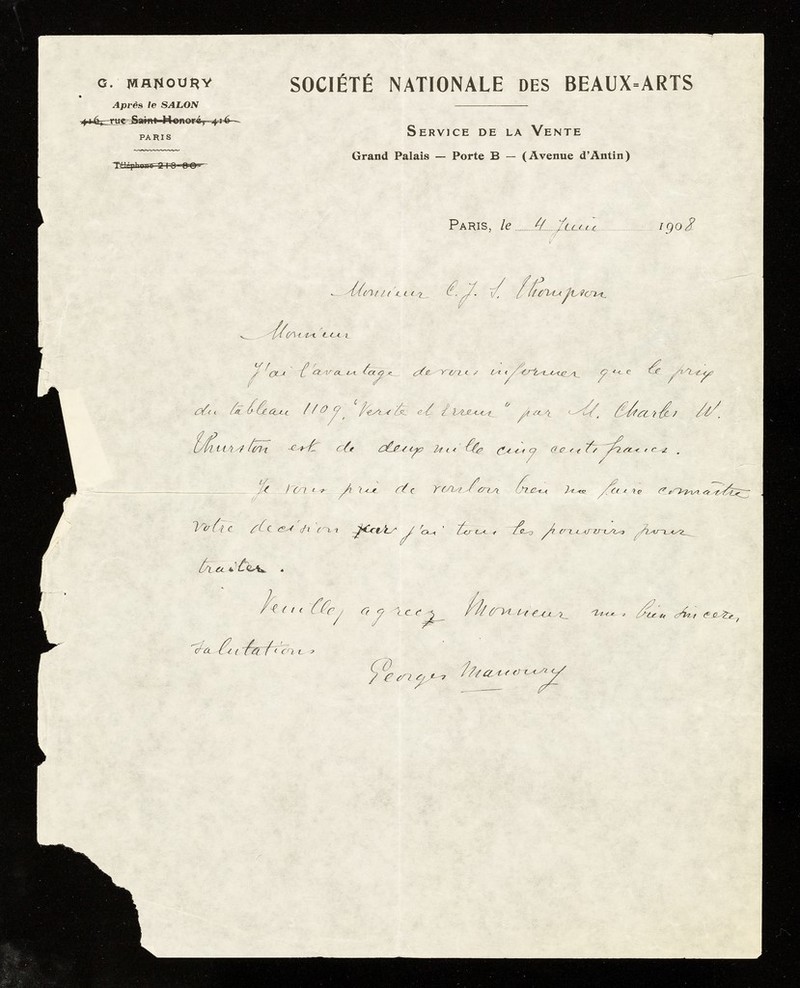 G. MANOURY
Après le SALON
416, rue Saint-Honoré, 416
PARIS
Téléphone 218-80
SOCIÉTÉ NATIONALE DES BEAUX=ARTS
SERVICE DE LA VENTE
Grand Palais — Porte B — (Avenue d'Antin)
PARIS, le 4 Juin 1908
Monsieur C. J. S. Thompson
Monsieur
J'ai l'avantage de vous informer que le prix
du tableau 1109, "Verité et Erreur" par M. Charles W.
Thurston est de deux mille cinq cents francs.
Je vous prie de vouloir bien me faire connaître
votre decision car j'ai tous les pouvoirs pour
traiter.
Veuillez agreez Monsieur mes bien sinceres
salutations
Georges Manoury